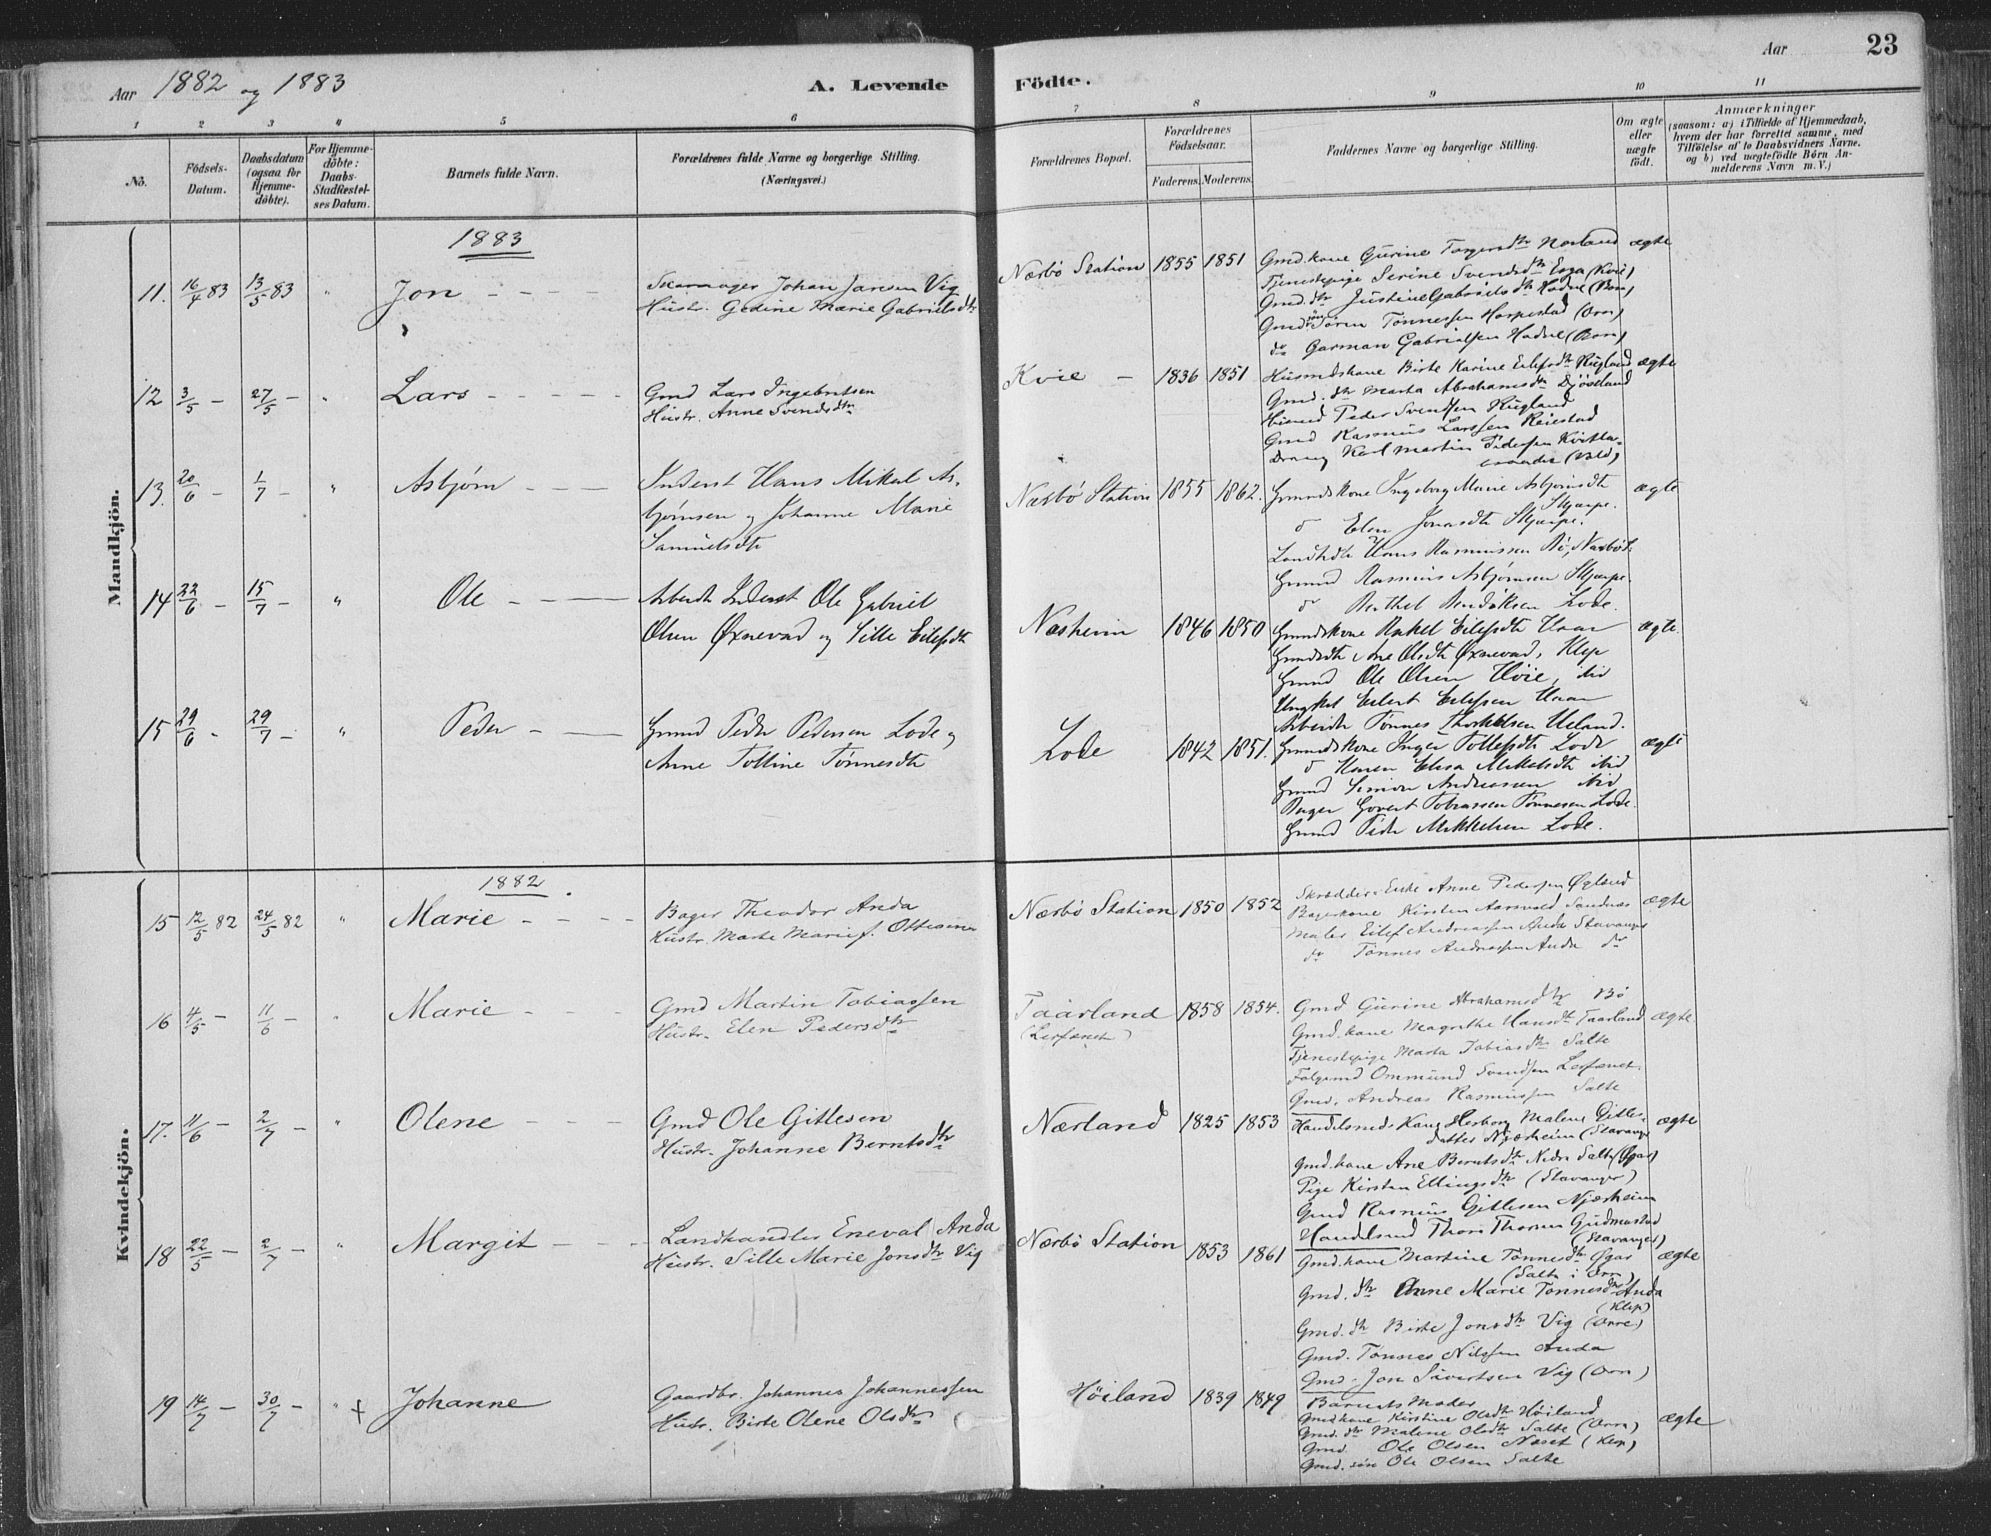 Aar 1882 og 1883
A. Levende Födte.
Aar
23
1 2 3 4 5 6 7 8 9 10 11
No.
Födsels-Datum.
Daabsdatum (ogsaa for Hjemme-döbte).
For Hjemme-döbte: Daabs-Stadfestel-ses Datum.
Barnets fulde Navn.
Forældrenes fulde Navne og borgerlige Stilling.
(Næringsvei.)
Forældrenes Bopæl.
Forældrenes Födselsaar.
Faderens. Moderens.
Faddernes Navne og borgerlige Stilling.
Om ægte eller uægte födt.
Anmærkninger
(saasom: a) i Tilfælde af Hjemmedaab,
hvem der har forrettet samme, med
Tilföielse af to Daabsvidners Navne.
og b) ved uægtefödte Börn An-
melderens Navn m. V.)
Mandkjön.
1883
11. 16/4 83 13/5 83 " Jon
Skomager Johan Jansen Vig
Hustr. Gedine Marie Gabrielsdtr
Nærbö Station 1855 1851
Gmd.kone Gurine Torgersdtr Norland ægte
Tjenestepige Serine Svendsdtr Ega (Kvie)
Gmd.dtr Justine Gabrielsdtr Hodne (Orre)
Gmd.sön Sören Tönnessen Horpestad (Orre)
do Garman Gabrielsen Hodne (Orre)
12 3/5 – 27/5 – " Lars
Gmd Lars Ingebretsen
Hustr. Anne Svendsdtr
Kvie – 1836 1851
Husmdskone Birte Karine Eilefsdtr Rugland ægte
Gmd.dtr Marta Abrahamsdtr Djösland
Husmd Peder Svendsen Rugland
Gmd Rasmus Larssen Reiestad
Dreng Karl Martin Pedersen Kvitla-
13. 20/6 – 1/7 – " Asbjørn
Inderst Hans Mikal As-
bjørnsen og Johanne Marie
Samuelsdtr
Nærbö Station 1855 1862.
Grmndskone Ingeborg Marie Asbjørnsdtr ægte
Skjærpe.
do Elen Jonasdtr Skjærpe.
Landhdlr Hans Rasmussen Bö, Nærbö St.
Grmnd Rasmus Asbjørnsen Skjærpe.
do Berthel Bendiksen Lode.
14 22/6 – 15/7 – " Ole
Arbeidr Inderst Ole Gabriel
Olsen Øxnevad og Sille Eilefsdtr
Næsheim 1846 1850
Grmndskone Rakel Eilefsdtr Haar ægte
Grmndsdtr Ane Olsdtr Øxnevad, Klep
Grmnd Ole Olsen Hvie, ibid
Ungkel Eilert Eilefsen Haar
Arbeidr Tønnes Thorkelsen Ueland.
15 29/6 – 29/7 – " Peder
Grmnd Peder Pedersen Lode og
Anne Tolline Tønnesdtr
Lode 1842 1851.
Grmndskone Inger Tollefsdtr Lode ægte
do Karen Elisa Mikkelsdtr ibid
Grmnd Simon Andreassen ibid
Bager Govert Tobiassen Tønnesen Lode.
Grmnd Peder Mikkelsen Lode.
Kvindekjön.
1882
15 12/5 82 24/5 82 " Marie
Bager Theodor Anda
Hustr. Marte Marie f. Ottesen
Nærbö Station 1850 1852
Skrædder-Enke Anne Pedersen Øglænd ægte
Bagerkone Kirsten Aarsvold Sandnæs
Maler Eilef Andreassen Anda Stavanger
do Tönnes Andreassen Anda do
16 4/5 – 11/6 – " Marie
Gmd Martin Tobiassen
Hustr. Elen Pedersdtr
Taarland (Lerfænet) 1858 1854.
Gmd Gurine Abrahamsdtr Bö
Gmd.kone Magrethe Hansdtr Taarland ægte
Tjenestepige Marta Tobiasdtr Salte
Folgemd Ommund Svendsen Lerfænet.
Gmd. Andreas Rasmussen Salte
17. 11/6 – 2/7 – " Olene
Gmd Ole Gitlesen
Hustr. Johanne Berntsdtr
Nærland 1825 1853
Handelsmds Kone Herborg Malene Gitles- ægte
datter Njærheim (Stavanger
Gmd.kone Ane Berntsdtr Nedre Salte (Ogar)
Pige Kirsten Ellingsdtr (Stavanger)
Gmd Rasmus Gitlesen Njærheim
Handelsmd Thore Thorsen Gudmestad
(Stavanger)
18 22/5 – 2/7 – " Margit
Landhandler Eneval Anda
Hustr. Sille Marie Jonsdtr Vig
Nærbö Station 1853 1861
Gmd.kone Martine Tönnesdtr Ogar ægte
(Salte i Orre)
Gmd.dtr Anne Marie Tönnesdtr Anda
(Klep)
Gmd.dtr Birte Jonsdtr Vig (Orre)
Gmd. Tönnes Nilssen Anda
Gmd. Jon Sivertsen Vig (Orre)
19 14/7 – 30/7 – " + Johanne
Gaardbr. Johannes Johannessen
Hustr. Birte Olene Olsdtr
Höiland 1839 1849
Barnets Moder
Gmd.kone Kirstine Olsdtr Höiland ægte
Gmd.dtr Malene Olsdtr Salte (Orre)
Gmd Ole Olsen Næset (Klep)
Gmd.sön Ole Olsen Salte